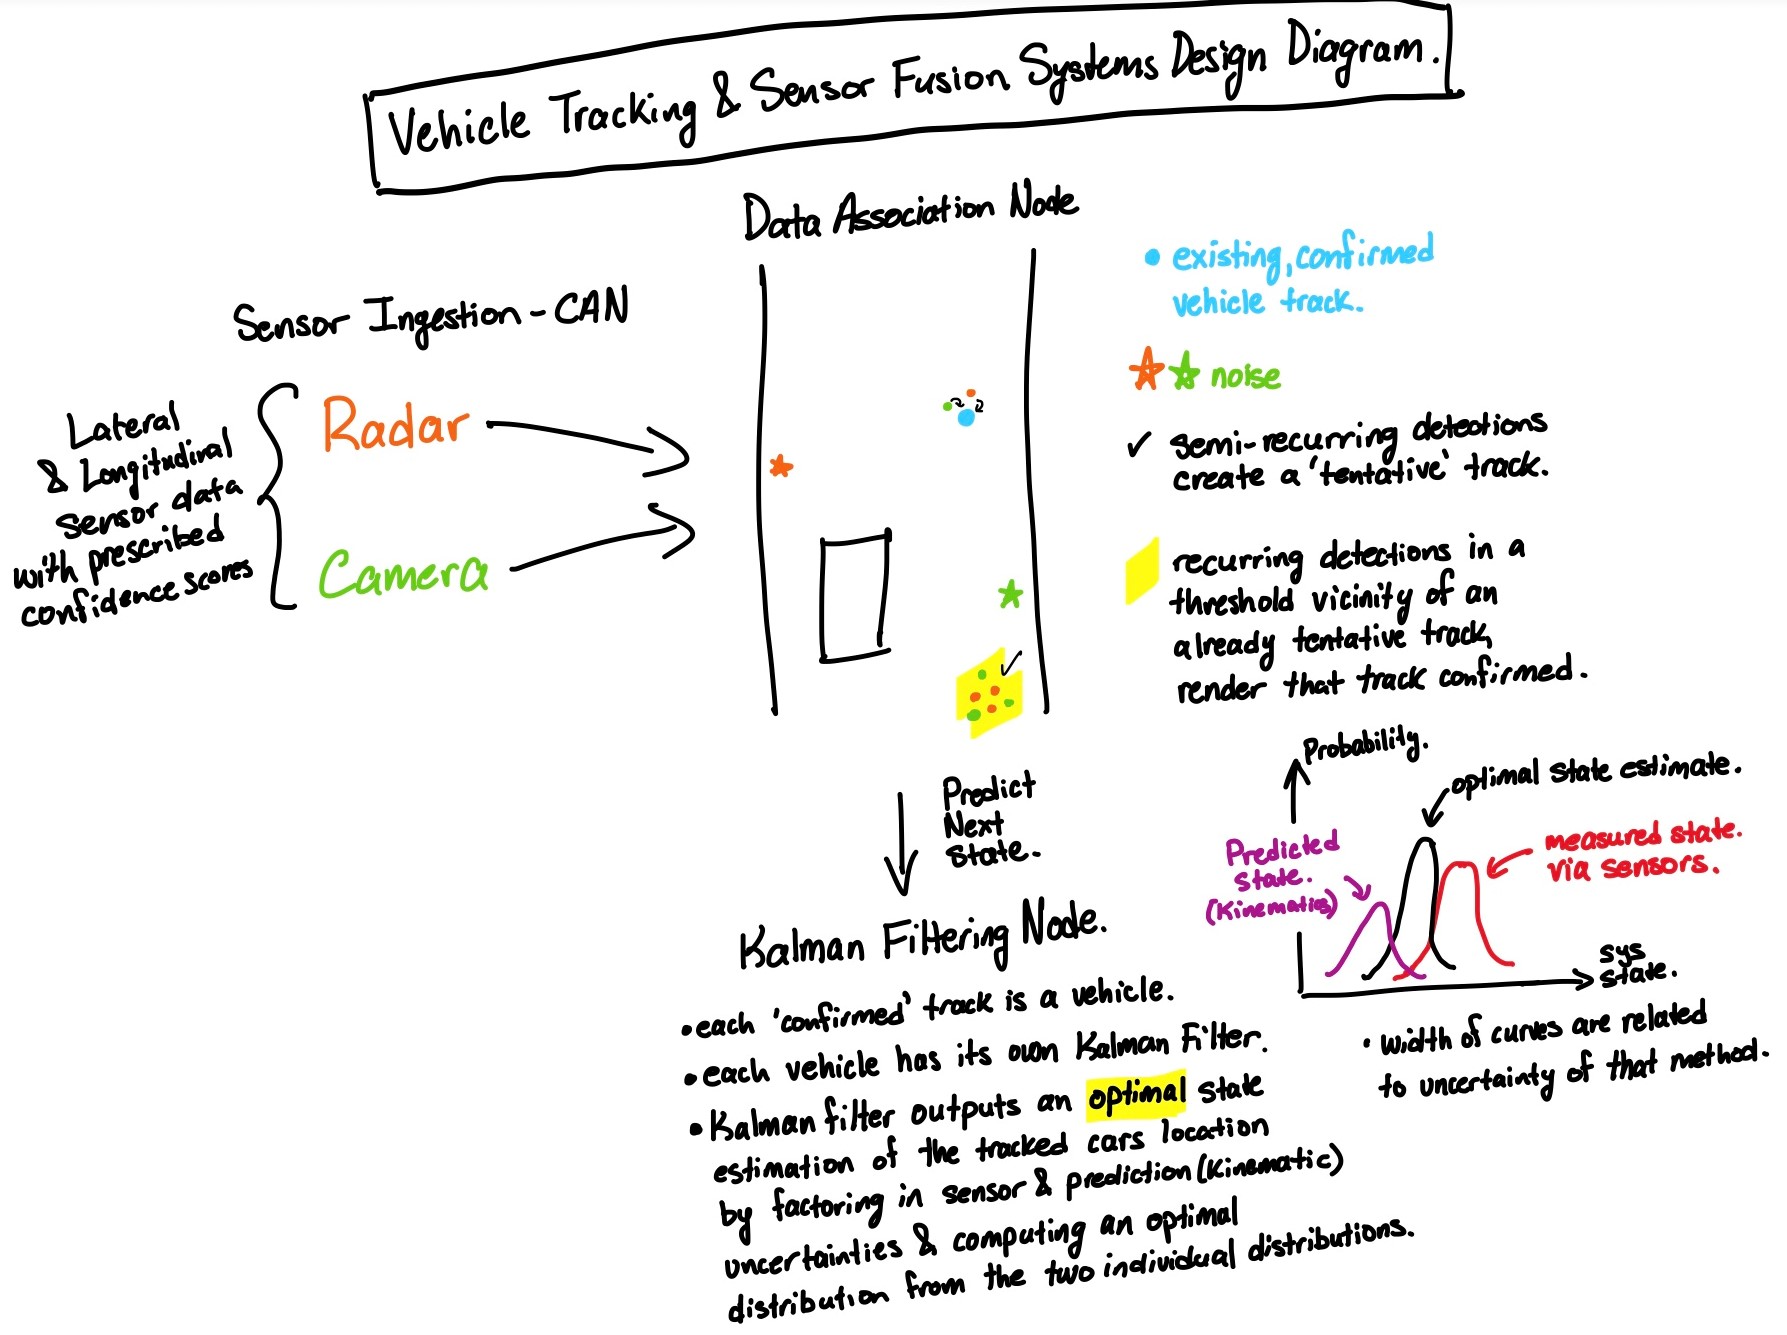 Vehicle Tracking & Sensor Fusion Systems Design Diagram.
Data Association Node
Sensor Ingestion - CAN
Lateral
& Longitudinal
sensor data
with prescribed
confidence scores
Radar
Camera
• existing, confirmed
vehicle track.
noise
✓ semi-recurring detections
create a 'tentative' track.
recurring detections in a
threshold vicinity of an
already tentative track,
render that track confirmed.
Predict
Next
state.
Kalman Filtering Node.
• each 'confirmed' track is a vehicle.
• each vehicle has its own Kalman Filter.
• Kalman filter outputs an optimal state
estimation of the tracked cars location
by factoring in sensor & prediction (Kinematic)
uncertainties & computing an optimal
distribution from the two individual distributions.
Probability.
optimal state estimate.
Predicted
state.
(Kinematics)
measured state.
via sensors.
sys
state.
• width of curves are related
to uncertainty of that method.